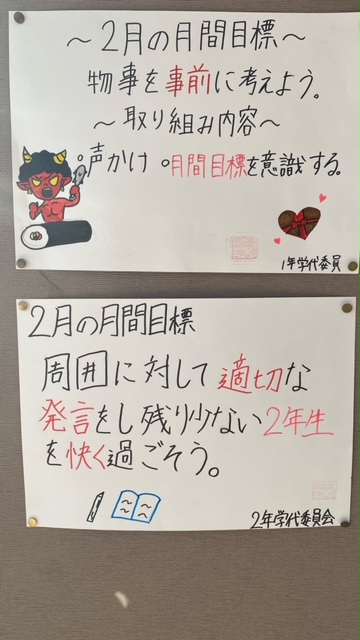 ～2月の月間目標～
物事を事前に考えよう。
～取り組み内容～
○声かけ ○月間目標を意識する。
1年学代委員
2月の月間目標
周囲に対して適切な
発言をし残り少ない2年生
を快く過ごそう。
2年学代委員会